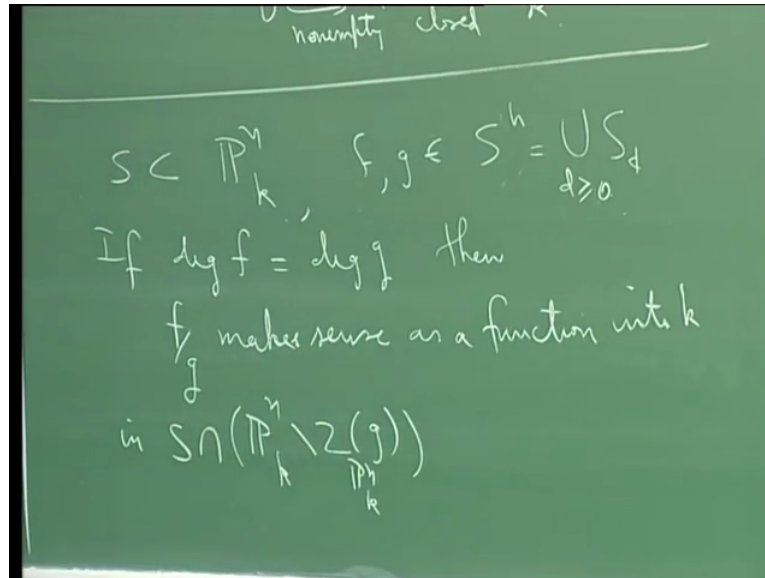 nonempty closed k
S ⊂ ℙⁿₖ, f, g ∈ Sʰ = ⋃ S_d
d≥0
If deg f = deg g then
f/g makes sense as a function into k
in S∩(ℙⁿₖ \ Z(g))
ℙⁿₖ